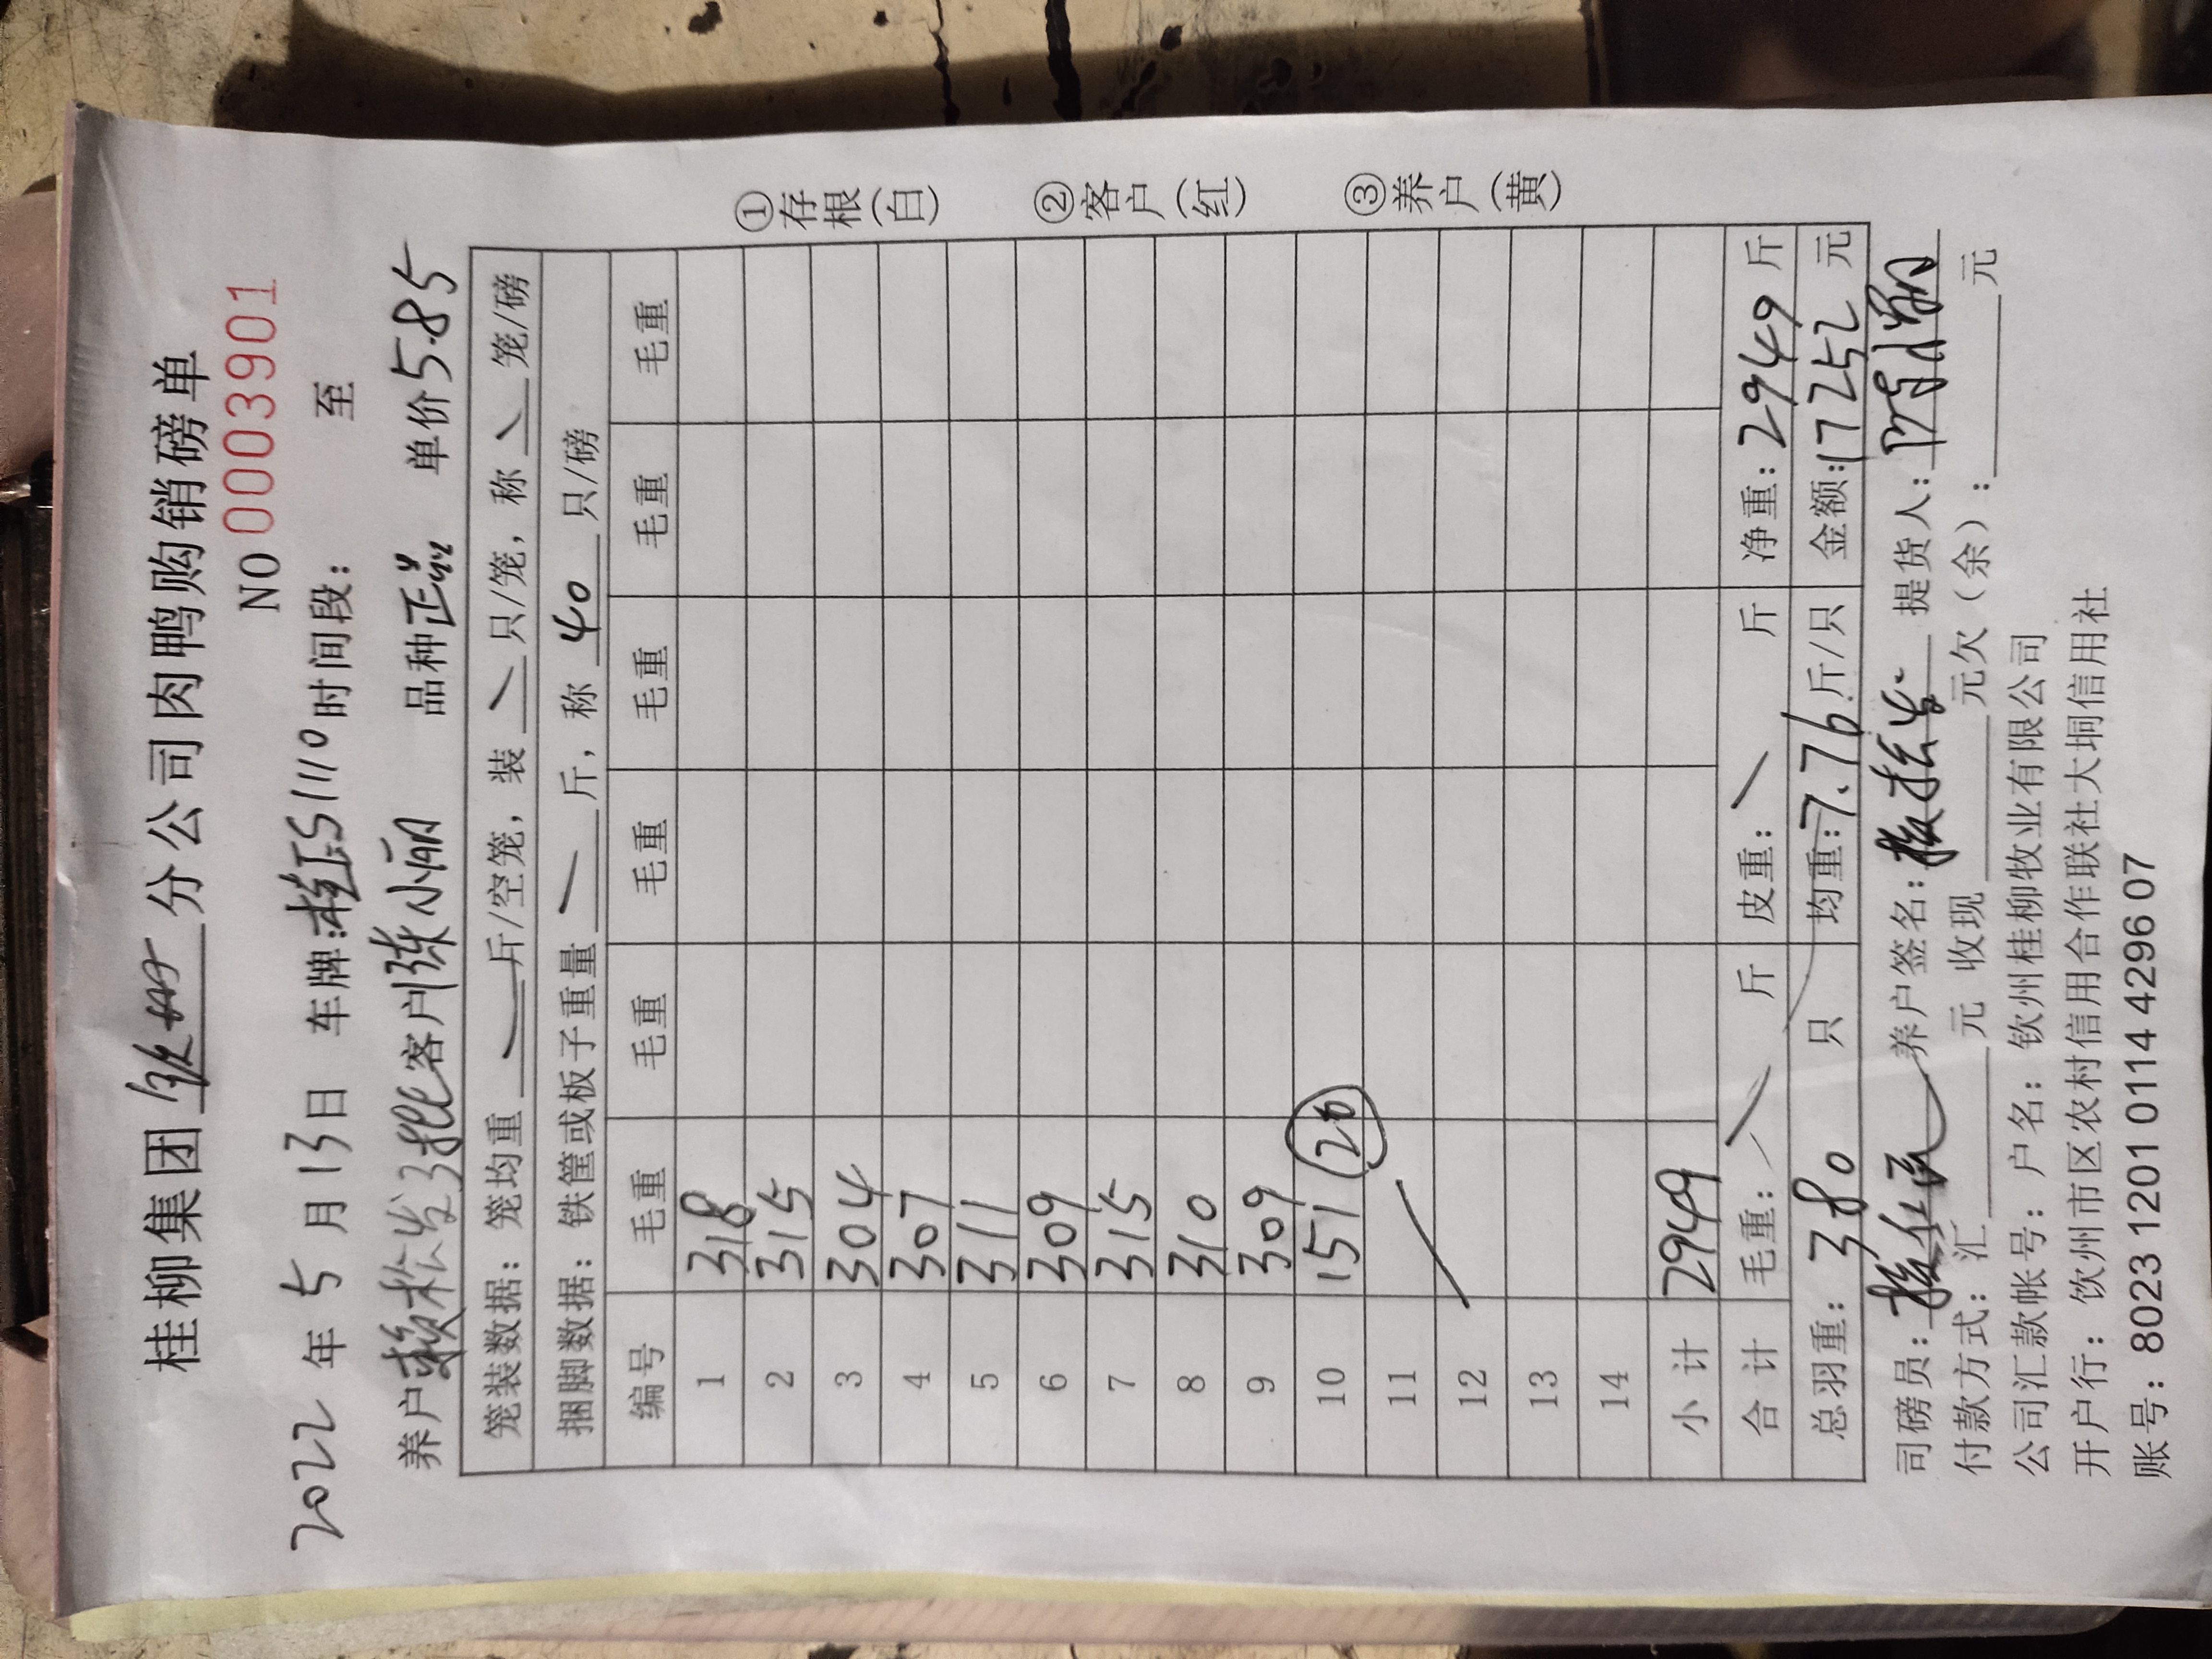 桂柳集团 钦州 分公司肉鸭购销磅单
NO 0003901
2022 年 5 月 13 日 车牌:桂 51110 时间段: 至
养户 赖松发3批 客户 陈小丽 品种 正品 单价 5.85
笼装数据: 笼均重 斤/空笼, 装 只/笼, 称 笼/磅
捆脚数据: 铁筐或板子重量 斤, 称 40 只/磅
编号 毛重 毛重 毛重 毛重 毛重 毛重
1 318
2 315
3 304
4 307
5 311
6 309
7 315
8 310
9 309
10 151 20
11
12
13
14
小计 2949
合计 毛重: 斤 皮重: 斤 净重: 2949 斤
总羽重: 380 只 均重: 7.76 斤/只 金额: 17252 元
①存根(白) ②客户(红) ③养户(黄)
司磅员: 养户签名: 提货人:
付款方式: 汇 元 收现 元欠(余): 元
公司汇款帐号: 户名: 钦州桂柳牧业有限公司
开户行: 钦州市区农村信用合作联社大垌信用社
账号: 8023 1201 0114 4296 07